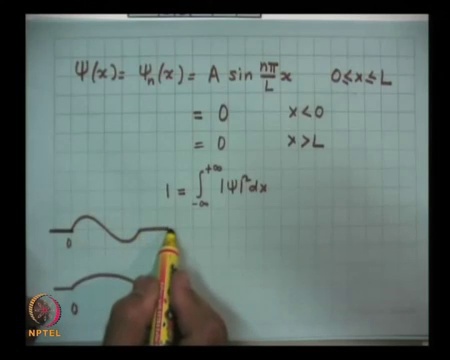 Ψ(x) = Ψₙ(x) = A sin nπ/L x 0≤x≤L
= 0 x<0
= 0 x>L
1 = ∫₋∞⁺∞ |Ψ|² dx
0
0
NPTEL